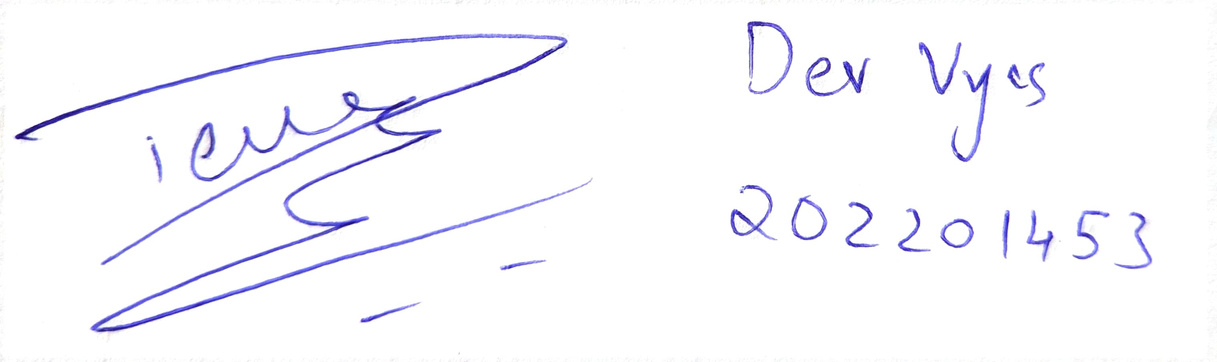 Dev Vyas
202201453